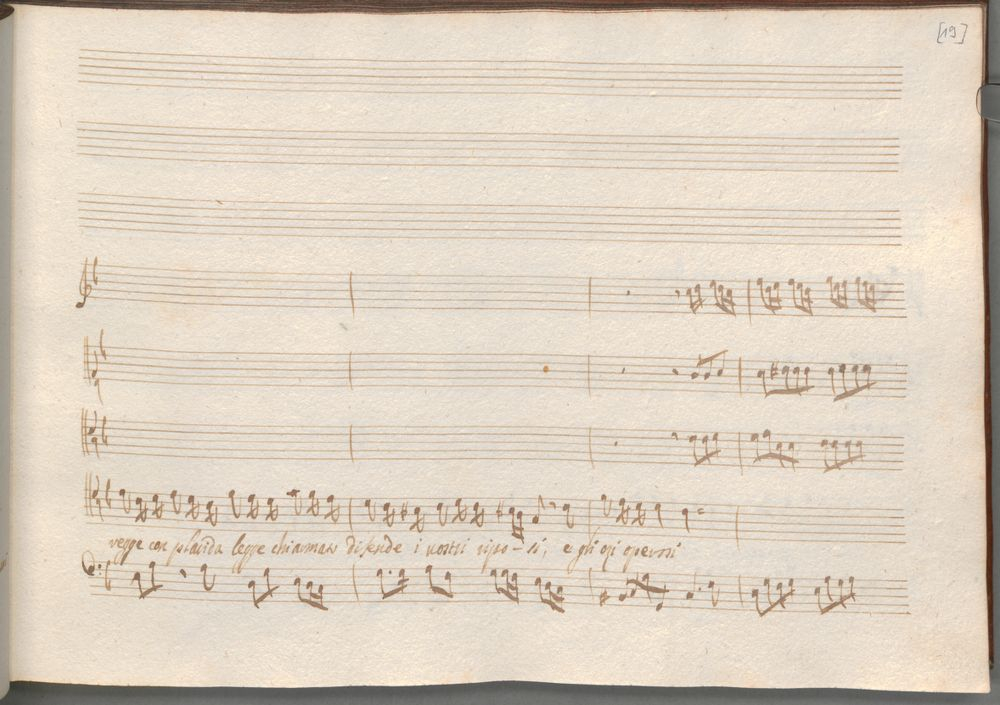 [19]
vegge con placida legge chiamato difende i nostri ripo-si, e gli ozi operosi